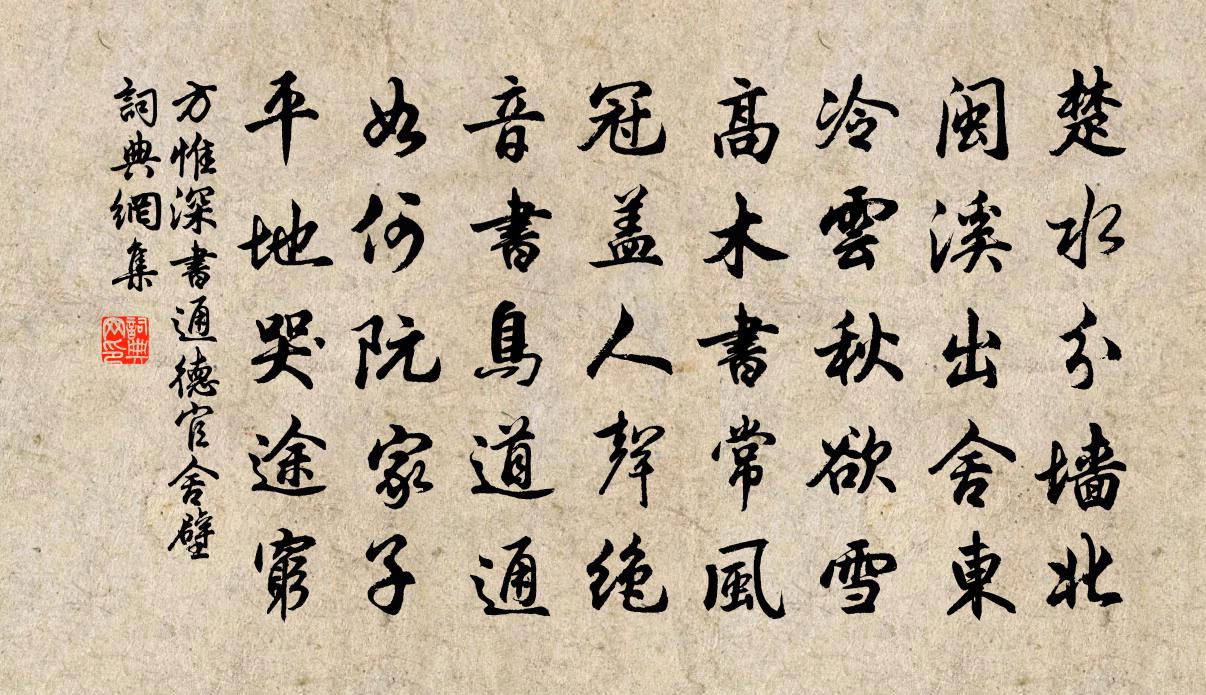 楚水分墙北
闽溪出舍東
冷雲秋欲雪
高木書常風
冠盖人聲绝
音書鳥道通
如何阮家子
平地哭途窮
方惟深書通德官舍壁
詞典網集
詞典網印